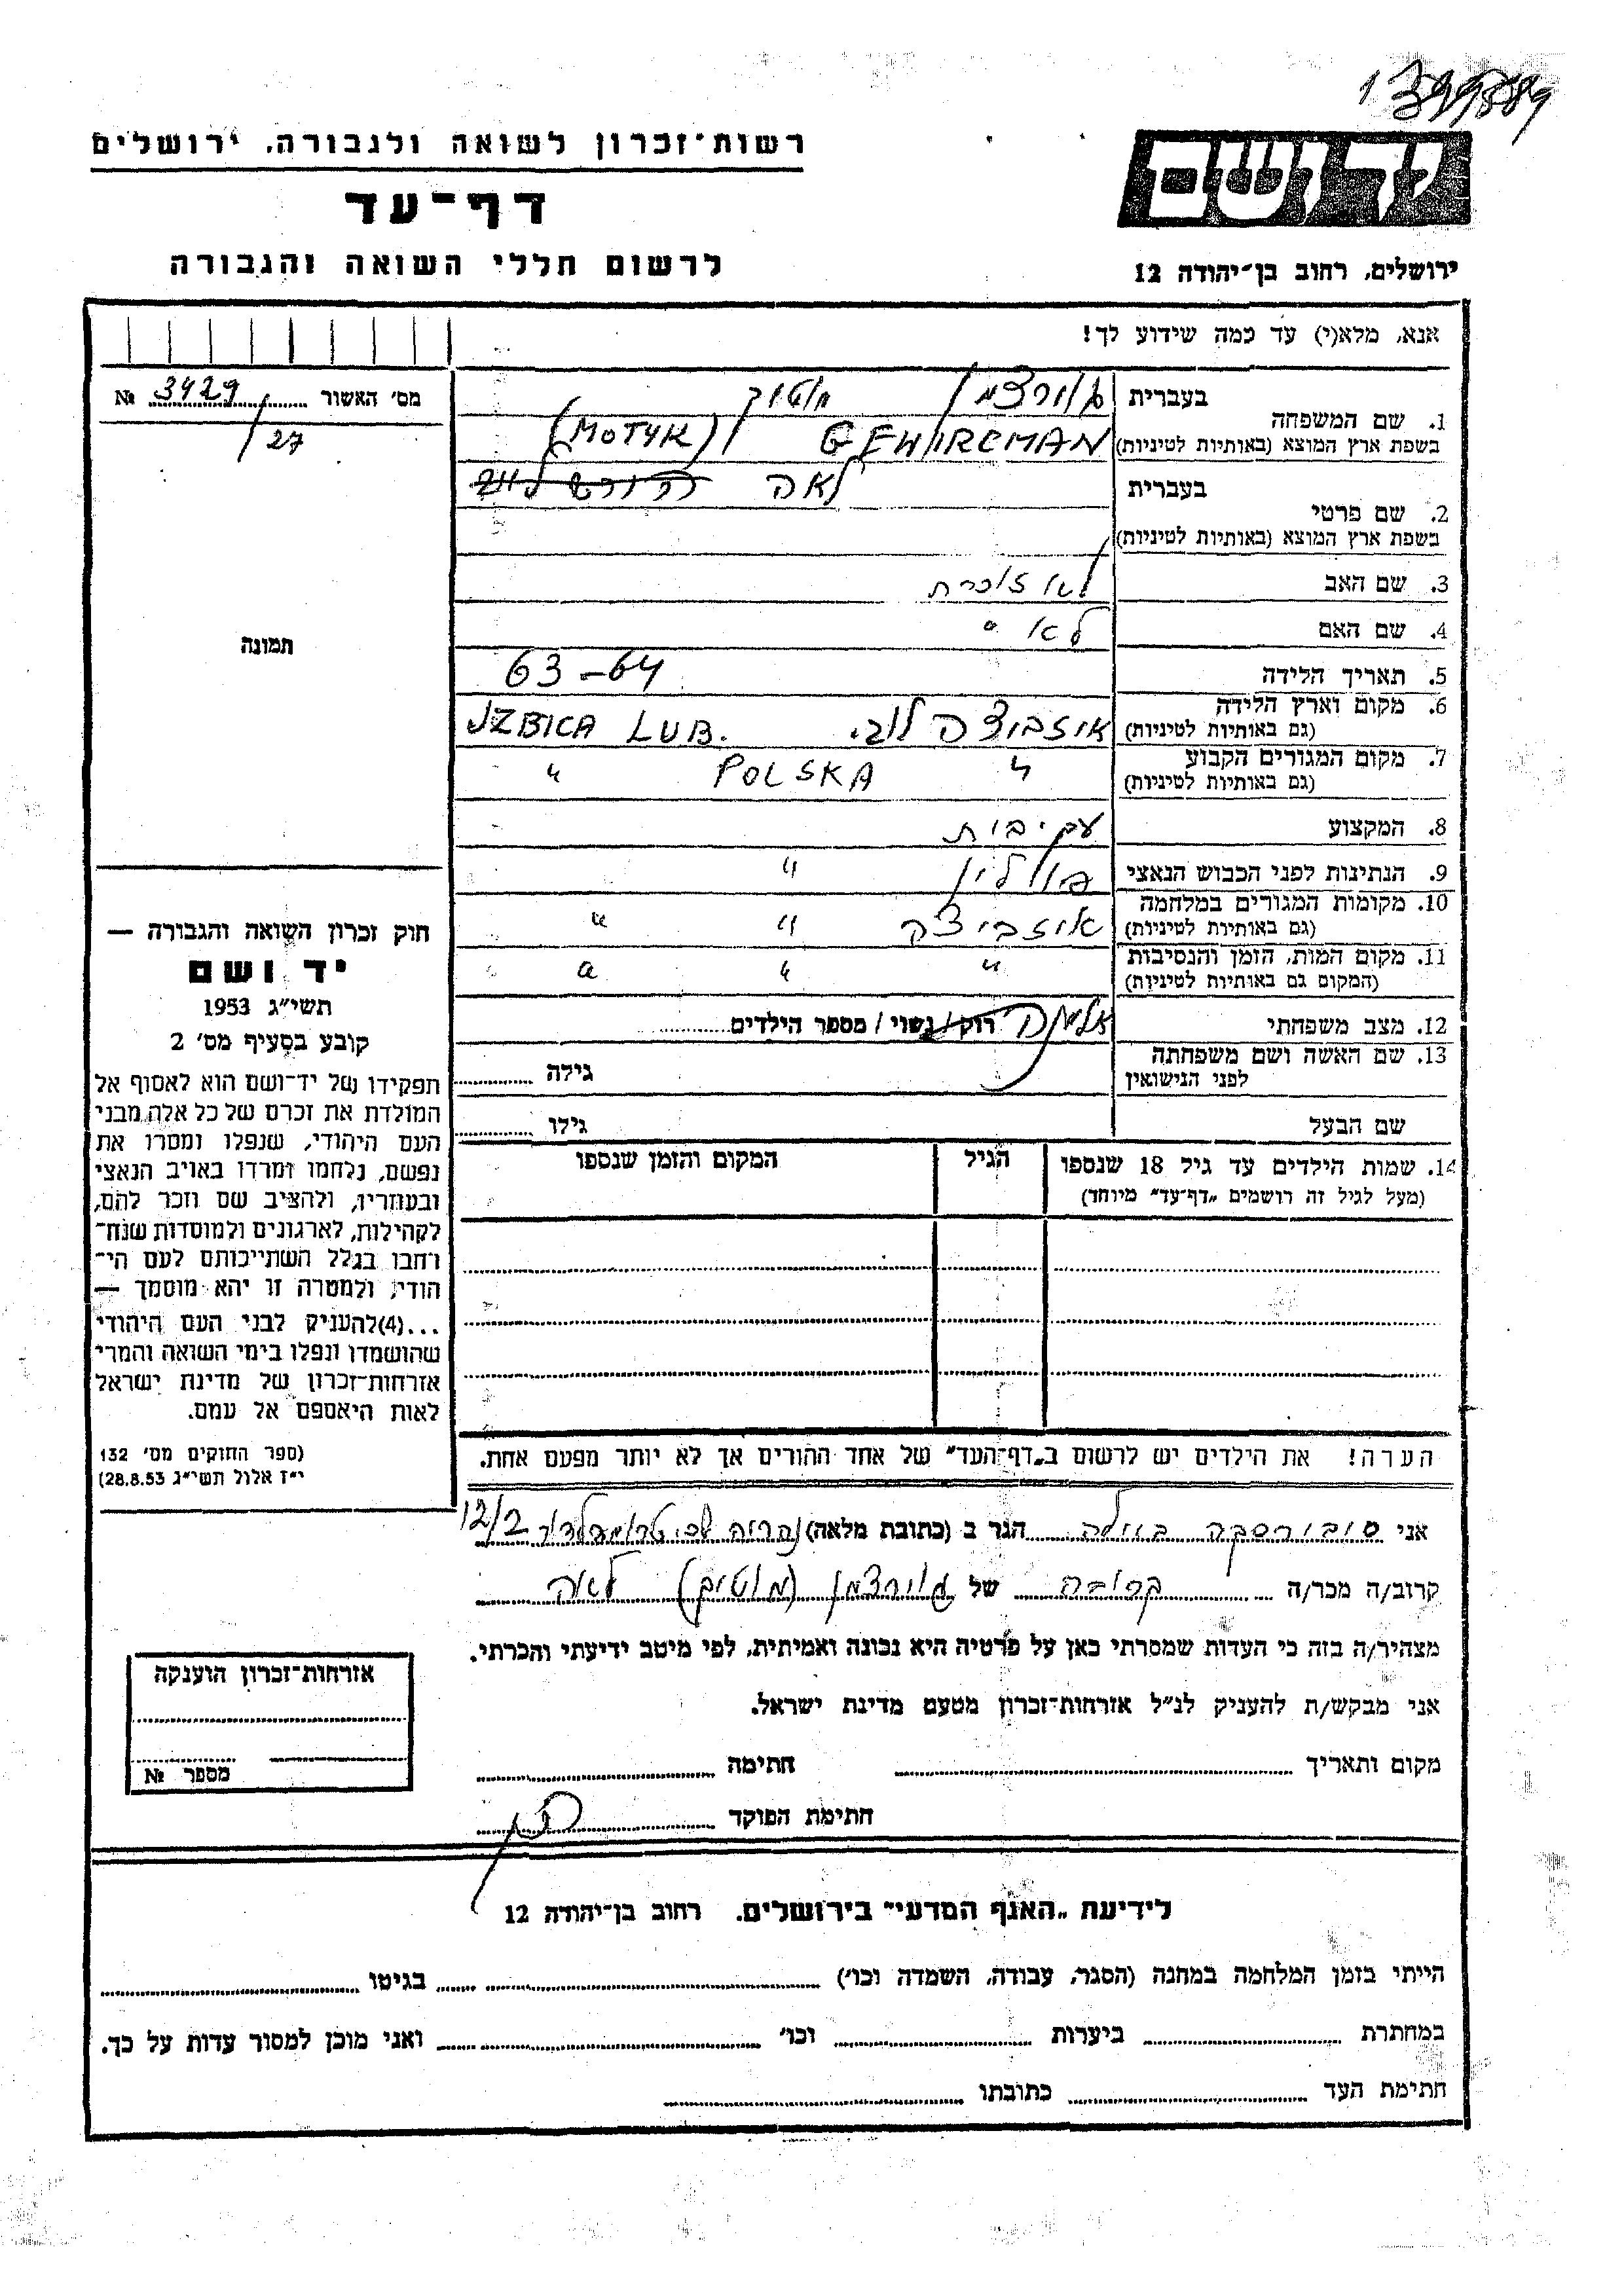 1399589
יד ושם
ירושלים, רחוב בן־יהודה 12
רשות־זכרון לשואה ולגבורה, ירושלים
דף־עד
לרשום חללי השואה והגבורה
אנא, מלא(י) עד כמה שידוע לך!
מס' האשור 3429 №
/27
1. שם המשפחה
בעברית גוירצמן מוטיק
בשפת ארץ המוצא (באותיות לטיניות) GEWIRCMAN (MOTYK)
2. שם פרטי
בעברית לאה
בשפת ארץ המוצא (באותיות לטיניות)
3. שם האב לא זוכרת
4. שם האם לא "
5. תאריך הלידה 63-64
6. מקום וארץ הלידה
(גם באותיות לטיניות) איזביצה לוב. IZBICA LUB.
7. מקום המגורים הקבוע
(גם באותיות לטיניות) " POLSKA "
8. המקצוע עק. בית
9. הנתינות לפני הכבוש הנאצי פולין "
10. מקומות המגורים במלחמה
(גם באותיות לטיניות) איזביצה " "
11. מקום המות, הזמן והנסיבות
(המקום גם באותיות לטיניות) " " "
12. מצב משפחתי אלמנה רוק/נשוי/מספר הילדים
13. שם האשה ושם משפחתה
לפני הנישואין גילה
שם הבעל גילו
14. שמות הילדים עד גיל 18 שנספו
(מעל לגיל זה רושמים „דף־עד" מיוחד)
הגיל
המקום והזמן שנספו
הערה! את הילדים יש לרשום ב„דף־העד" של אחד ההורים אך לא יותר מפעם אחת.
תמונה
חוק זכרון השואה והגבורה —
יד ושם
תשי"ג 1953
קובע בסעיף מס' 2
תפקידו של יד־ושם הוא לאסוף אל
המולדת את זכרם של כל אלה מבני
העם היהודי, שנפלו ומסרו את
נפשם, נלחמו ומרדו באויב הנאצי
ובעוזריו, ולהציב שם וזכר להם,
לקהילות, לארגונים ולמוסדות שנח־
רבו בגלל השתייכותם לעם הי־
הודי, ולמטרה זו יהא מוסמך —
...(4)להעניק לבני העם היהודי
שהושמדו ונפלו בימי השואה והמרי
אזרחות־זכרון של מדינת ישראל
לאות היאספם אל עמם.
(ספר החוקים מס' 132
י"ז אלול תשי"ג 28.8.53)
אני סובורסקה ביילה הגר ב (כתובת מלאה) נהריה טרומפלדור 12/2
קרוב/ה מכר/ה קרובה של גוירצמן (מוטיק) לאה
מצהיר/ה בזה כי העדות שמסרתי כאן על פרטיה היא נכונה ואמיתית, לפי מיטב ידיעתי והכרתי.
אני מבקש/ת להעניק לנ"ל אזרחות־זכרון מטעם מדינת ישראל.
מקום ותאריך חתימה
חתימת הפוקד
אזרחות־זכרון הוענקה
מספר №
לידיעת „האגף המדעי" בירושלים, רחוב בן־יהודה 12
הייתי בזמן המלחמה במחנה (הסגר, עבודה, השמדה וכו') בגיטו
במחתרת ביערות וכו' ואני מוכן למסור עדות על כך.
חתימת העד כתובתו